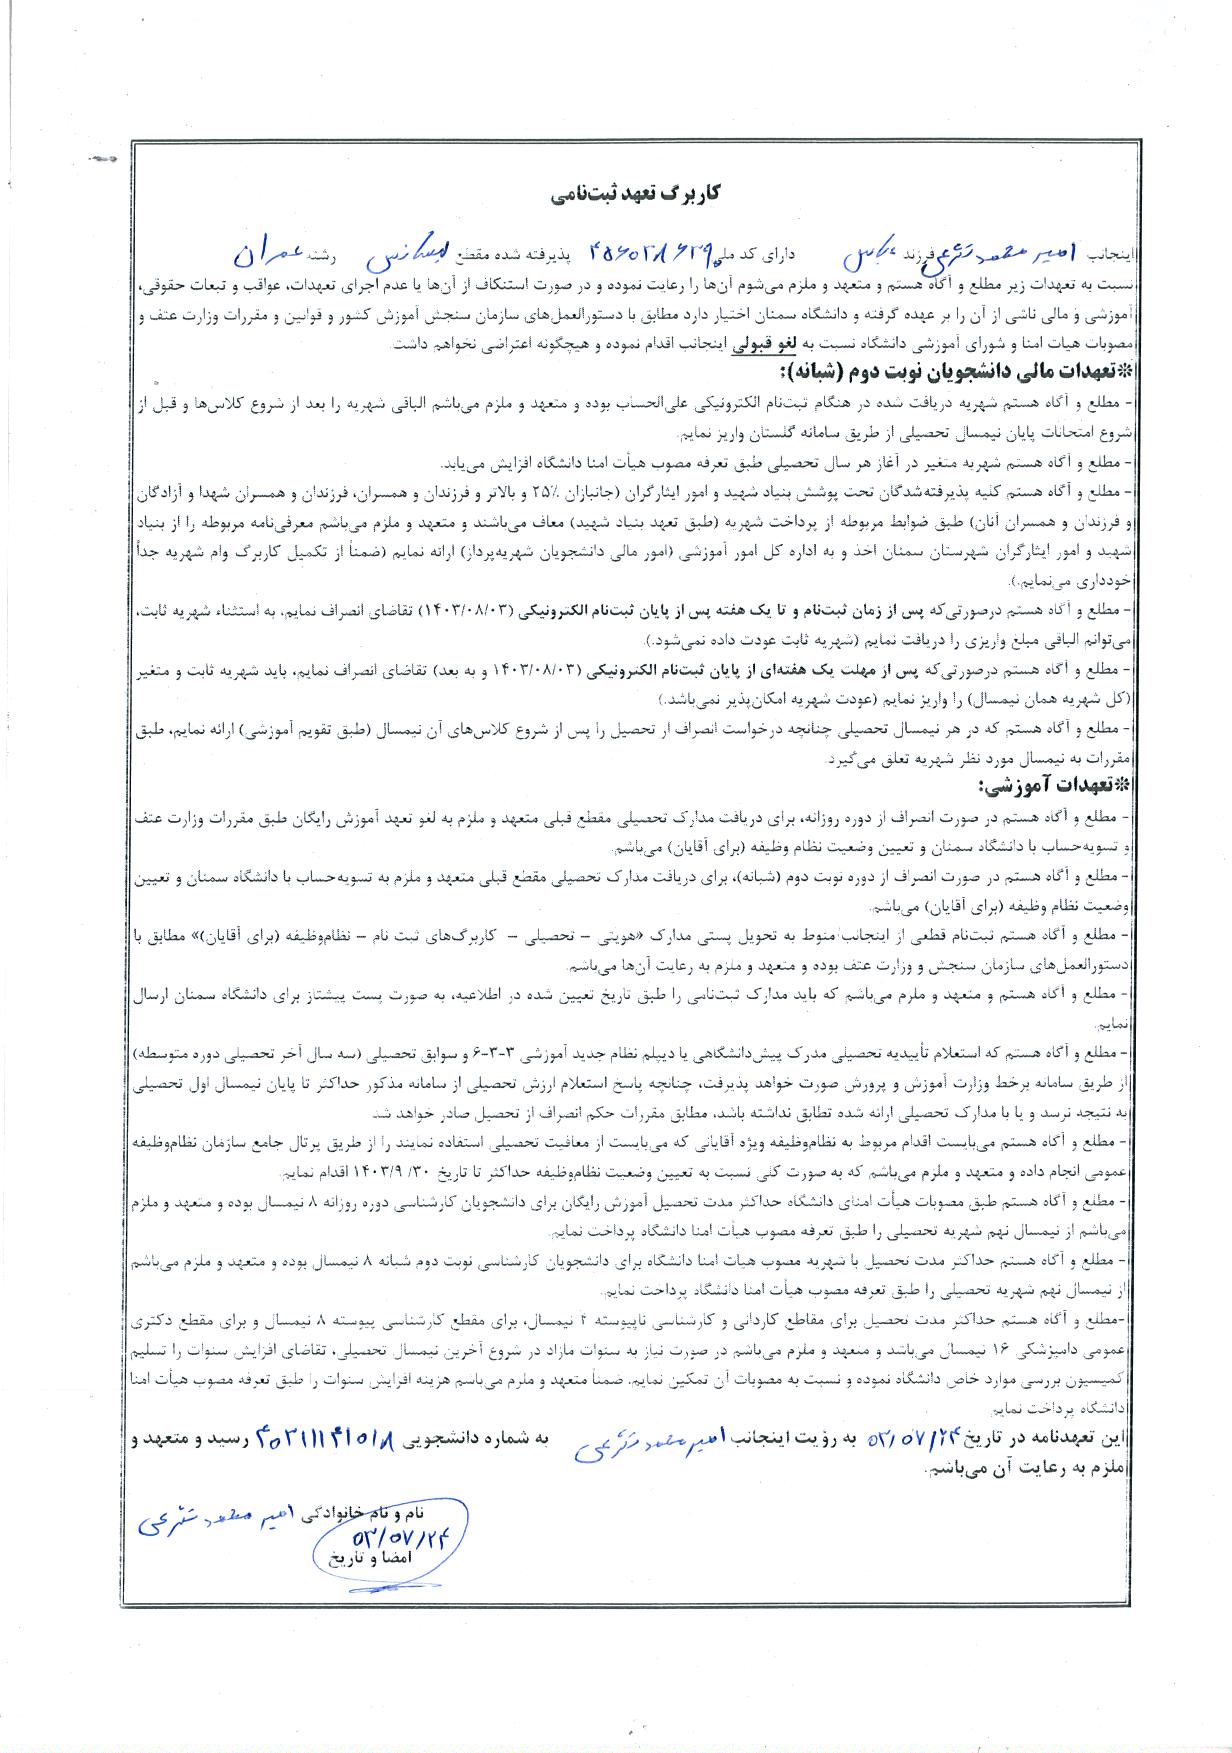 کاربرگ تعهد ثبت‌نامی
اینجانب امیر محمود فرزند عباس دارای کد ملی پذیرفته شده مقطع لیسانس رشته عمران
نسبت به تعهدات زیر مطلع و آگاه هستم و متعهد و ملزم می‌شوم آن‌ها را رعایت نموده و در صورت استنکاف از آن‌ها یا عدم اجرای تعهدات، عواقب و تبعات حقوقی،
آموزشی و مالی ناشی از آن را بر عهده گرفته و دانشگاه سمنان اختیار دارد مطابق با دستورالعمل‌های سازمان سنجش آموزش کشور و قوانین و مقررات وزارت عتف و
مصوبات هیات امنا و شورای آموزشی دانشگاه نسبت به لغو قبولی اینجانب اقدام نموده و هیچگونه اعتراضی نخواهم داشت.
*تعهدات مالی دانشجویان نوبت دوم (شبانه):
- مطلع و آگاه هستم شهریه دریافت شده در هنگام ثبت‌نام الکترونیکی علی‌الحساب بوده و متعهد و ملزم می‌باشم الباقی شهریه را بعد از شروع کلاس‌ها و قبل از
شروع امتحانات پایان نیمسال تحصیلی از طریق سامانه گلستان واریز نمایم.
- مطلع و آگاه هستم شهریه متغیر در آغاز هر سال تحصیلی طبق تعرفه مصوب هیأت امنا دانشگاه افزایش می‌یابد.
- مطلع و آگاه هستم کلیه پذیرفته‌شدگان تحت پوشش بنیاد شهید و امور ایثارگران (جانبازان ۲۵٪ و بالاتر و فرزندان و همسران، فرزندان و همسران شهدا و آزادگان
و فرزندان و همسران آنان) طبق ضوابط مربوطه از پرداخت شهریه (طبق تعهد بنیاد شهید) معاف می‌باشند و متعهد و ملزم می‌باشم معرفی‌نامه مربوطه را از بنیاد
شهید و امور ایثارگران شهرستان سمنان اخذ و به اداره کل امور آموزشی (امور مالی دانشجویان شهریه‌پرداز) ارائه نمایم (ضمناً از تکمیل کاربرگ وام شهریه جداً
خودداری می‌نمایم.).
- مطلع و آگاه هستم درصورتی‌که پس از زمان ثبت‌نام و تا یک هفته پس از پایان ثبت‌نام الکترونیکی (۱۴۰۳/۰۸/۰۳) تقاضای انصراف نمایم، به استثناء شهریه ثابت،
می‌توانم الباقی مبلغ واریزی را دریافت نمایم (شهریه ثابت عودت داده نمی‌شود.).
- مطلع و آگاه هستم درصورتی‌که پس از مهلت یک هفته‌ای از پایان ثبت‌نام الکترونیکی (۱۴۰۳/۰۸/۰۳ و به بعد) تقاضای انصراف نمایم، باید شهریه ثابت و متغیر
(کل شهریه همان نیمسال) را واریز نمایم (عودت شهریه امکان‌پذیر نمی‌باشد.)
- مطلع و آگاه هستم که در هر نیمسال تحصیلی چنانچه درخواست انصراف از تحصیل را پس از شروع کلاس‌های آن نیمسال (طبق تقویم آموزشی) ارائه نمایم، طبق
مقررات به نیمسال مورد نظر شهریه تعلق می‌گیرد.
*تعهدات آموزشی:
- مطلع و آگاه هستم در صورت انصراف از دوره روزانه، برای دریافت مدارک تحصیلی مقطع قبلی متعهد و ملزم به لغو تعهد آموزش رایگان طبق مقررات وزارت عتف
و تسویه‌حساب با دانشگاه سمنان و تعیین وضعیت نظام وظیفه (برای آقایان) می‌باشم.
- مطلع و آگاه هستم در صورت انصراف از دوره نوبت دوم (شبانه)، برای دریافت مدارک تحصیلی مقطع قبلی متعهد و ملزم به تسویه‌حساب با دانشگاه سمنان و تعیین
وضعیت نظام وظیفه (برای آقایان) می‌باشم.
- مطلع و آگاه هستم ثبت‌نام قطعی از اینجانب منوط به تحویل پستی مدارک «هویتی – تحصیلی – کاربرگ‌های ثبت نام – نظام‌وظیفه (برای آقایان)» مطابق با
دستورالعمل‌های سازمان سنجش و وزارت عتف بوده و متعهد و ملزم به رعایت آن‌ها می‌باشم.
- مطلع و آگاه هستم و متعهد و ملزم می‌باشم که باید مدارک ثبت‌نامی را طبق تاریخ تعیین شده در اطلاعیه، به صورت پست پیشتاز برای دانشگاه سمنان ارسال
نمایم.
- مطلع و آگاه هستم که استعلام تأییدیه تحصیلی مدرک پیش‌دانشگاهی یا دیپلم نظام جدید آموزشی ۳-۳-۶ و سوابق تحصیلی (سه سال آخر تحصیلی دوره متوسطه)
از طریق سامانه برخط وزارت آموزش و پرورش صورت خواهد پذیرفت، چنانچه پاسخ استعلام ارزش تحصیلی از سامانه مذکور حداکثر تا پایان نیمسال اول تحصیلی
به نتیجه نرسد و یا با مدارک تحصیلی ارائه شده تطابق نداشته باشد، مطابق مقررات حکم انصراف از تحصیل صادر خواهد شد
- مطلع و آگاه هستم می‌بایست اقدام مربوط به نظام‌وظیفه ویژه آقایانی که می‌بایست از معافیت تحصیلی استفاده نمایند را از طریق پرتال جامع سازمان نظام‌وظیفه
عمومی انجام داده و متعهد و ملزم می‌باشم که به صورت کلی نسبت به تعیین وضعیت نظام‌وظیفه حداکثر تا تاریخ ۱۴۰۳/۹/۳۰ اقدام نمایم.
- مطلع و آگاه هستم طبق مصوبات هیأت امنای دانشگاه حداکثر مدت تحصیل آموزش رایگان برای دانشجویان کارشناسی دوره روزانه ۸ نیمسال بوده و متعهد و ملزم
می‌باشم از نیمسال نهم شهریه تحصیلی را طبق تعرفه مصوب هیأت امنا دانشگاه پرداخت نمایم.
- مطلع و آگاه هستم حداکثر مدت تحصیل با شهریه مصوب هیات امنا دانشگاه برای دانشجویان کارشناسی نوبت دوم شبانه ۸ نیمسال بوده و متعهد و ملزم می‌باشم
از نیمسال نهم شهریه تحصیلی را طبق تعرفه مصوب هیأت امنا دانشگاه پرداخت نمایم.
-مطلع و آگاه هستم حداکثر مدت تحصیل برای مقاطع کاردانی و کارشناسی ناپیوسته ۴ نیمسال، برای مقطع کارشناسی پیوسته ۸ نیمسال و برای مقطع دکتری
عمومی دامپزشکی ۱۶ نیمسال می‌باشد و متعهد و ملزم می‌باشم در صورت نیاز به سنوات مازاد در شروع آخرین نیمسال تحصیلی، تقاضای افزایش سنوات را تسلیم
کمیسیون بررسی موارد خاص دانشگاه نموده و نسبت به مصوبات آن تمکین نمایم. ضمناً متعهد و ملزم می‌باشم هزینه افزایش سنوات را طبق تعرفه مصوب هیأت امنا
دانشگاه پرداخت نمایم
این تعهدنامه در تاریخ ۰۳/۰۷/۲۴ به رؤیت اینجانب امیر محمود به شماره دانشجویی ۴۰۳۱۱۱۴۱۰۱۸ رسید و متعهد و
ملزم به رعایت آن می‌باشم.
نام و نام خانوادگی امیر محمود
۰۳/۰۷/۲۴
امضا و تاریخ